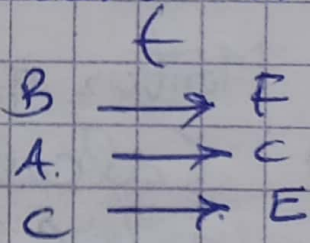 t
B → F
A. → C
C → E